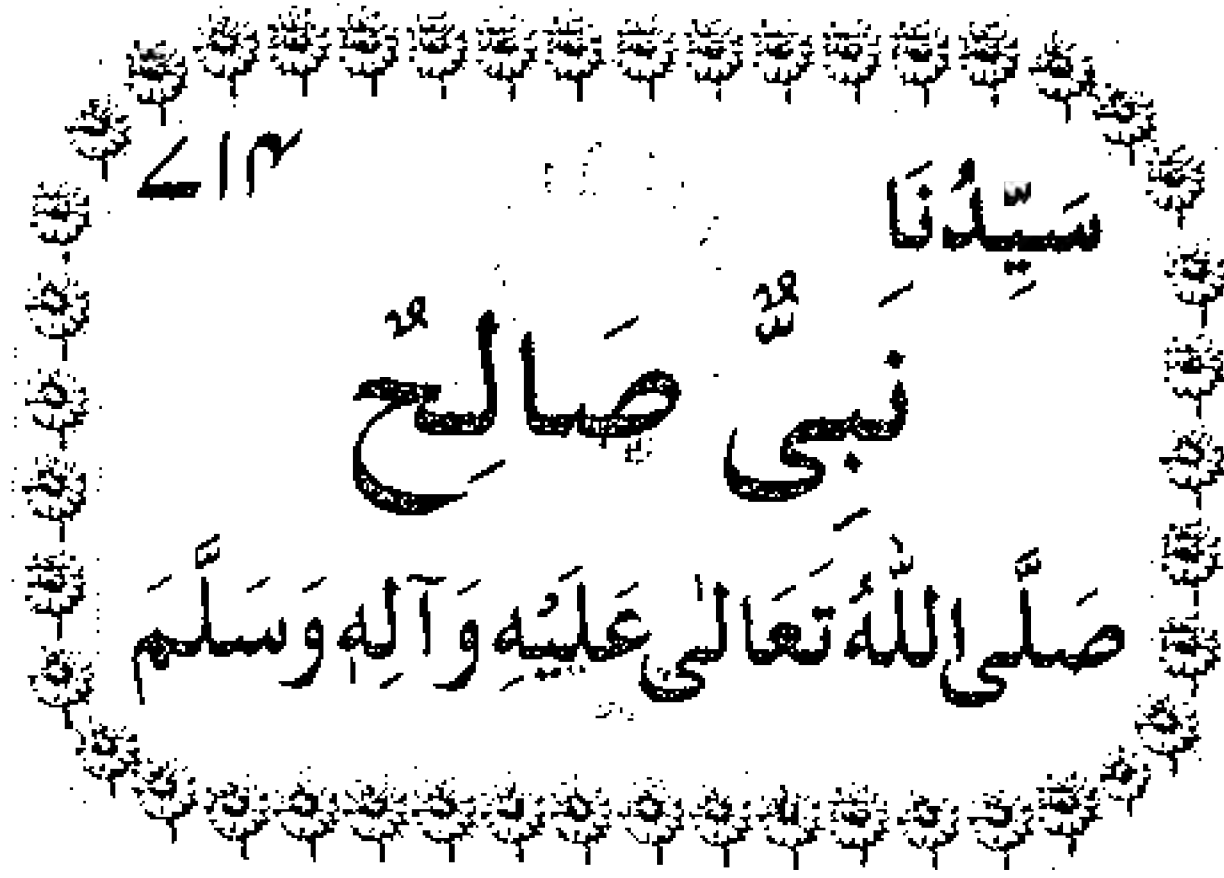 ۷۱۴
سَيِّدُنَا
نَبِيٌّ صَالِحٌ
صَلَّى اللّٰهُ تَعَالٰى عَلَيْهِ وَآلِهٖ وَسَلَّمَ